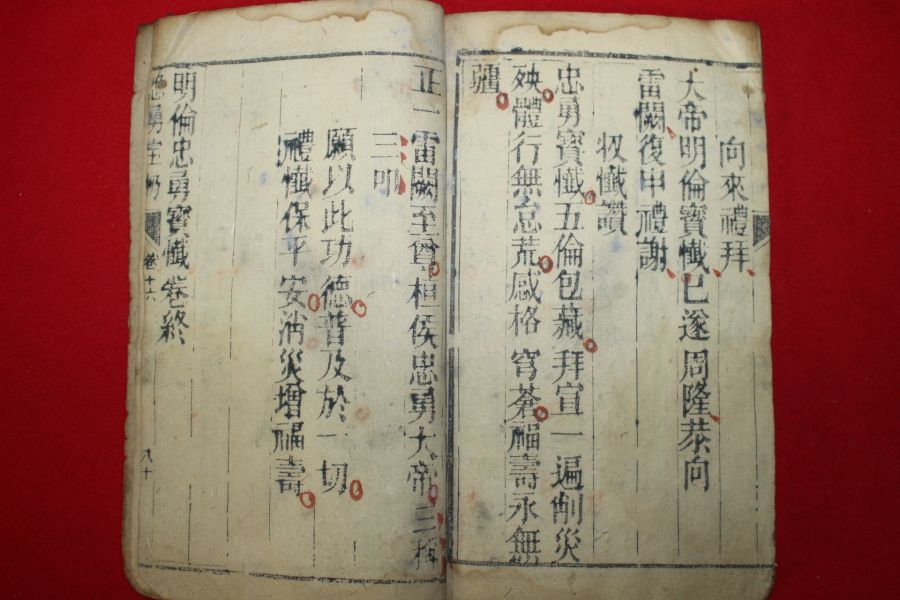 向來禮拜
大帝明倫寳懴已遂周隆恭向
雷闕復申禮謝
収懴讚
忠勇寳懴五倫包藏拜宣一遍削災
殃體行無怠荒感格穹蒼福壽永無
疆
正一雷闕至尊桓侯忠勇大帝三稱
三叩
願以此功德普及於一切
禮懴保平安消災增福壽
明倫忠勇寳懴卷終
忠勇
卷十六
八十